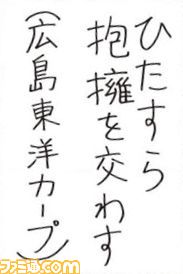 ひたすら
抱擁を交わす
（広島東洋カープ）
ファミ通.com